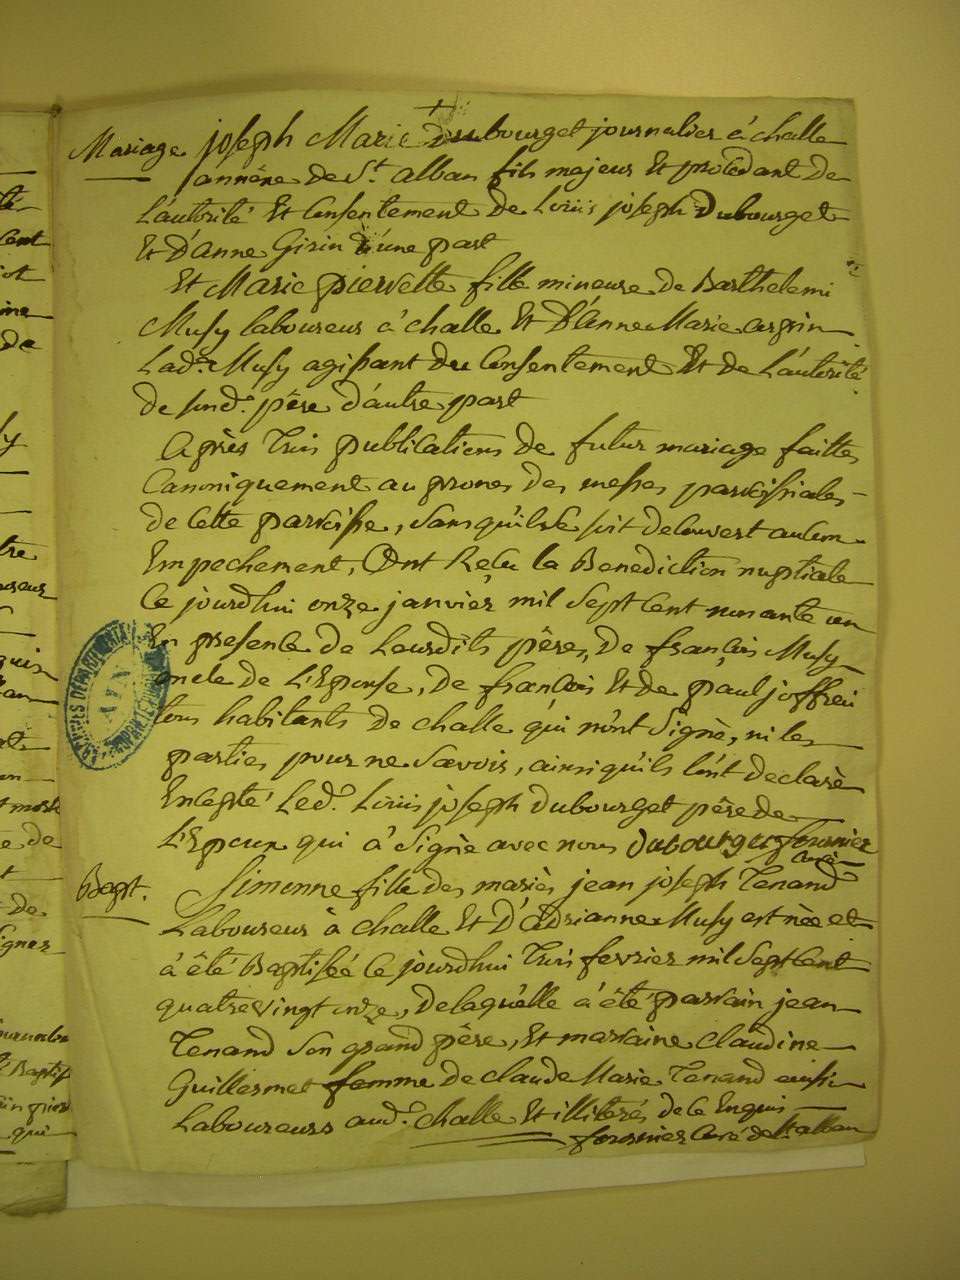 Mariage joseph Marie Dubourget journalier à challe
annéxe de St. alban fils majeur Et procedant de
L'autorité Et Consentement de Loüis joseph Dubourget
Et D'anne Girin d'une part
Et Marie pierrette fille mineure de Barthelemi
Musy laboureur à challe Et D'anne Marie
Lade. Musy agissant du Consentement Et de L'autorité
de sond. père d'autre part
Après Trois publications de futur mariage faittes
Canoniquement au prones des messes paroissiales
de Cette paroisse, sans qu'il se soit decouvert aucun
Empechement, Ont Reçu la Benediction nuptiale
Ce jourdhui onze janvier mil Sept Cent nonante un
En presence de Leursdits pères, de françois Musy
oncle de L'Epouse, de françois Et de paul joffrei
tous habitants de challe qui n'ont Signé, ni les
parties pour ne Savoir, ainsi qu'ils l'ont declaré
Excepté Led. Loüis joseph Dubourget père de
L'Epoux qui à Signé avec nous Dubourget fournier
Curé
Bapt. Simonne fille des mariés jean joseph Tenand
Laboureur à challe Et D'Adrianne Musy est née et
à été Baptisée Ce jourdhui Trois fevrier mil Sept Cent
quatre vingt onze, de laquelle à été parrain jean
Tenand Son grand père, Et marraine claudine
Guillermet femme de claude Marie Tenand aussi
Laboureurs aud. challe Et illiterés de ce Enquis
fournier Curé de St alban